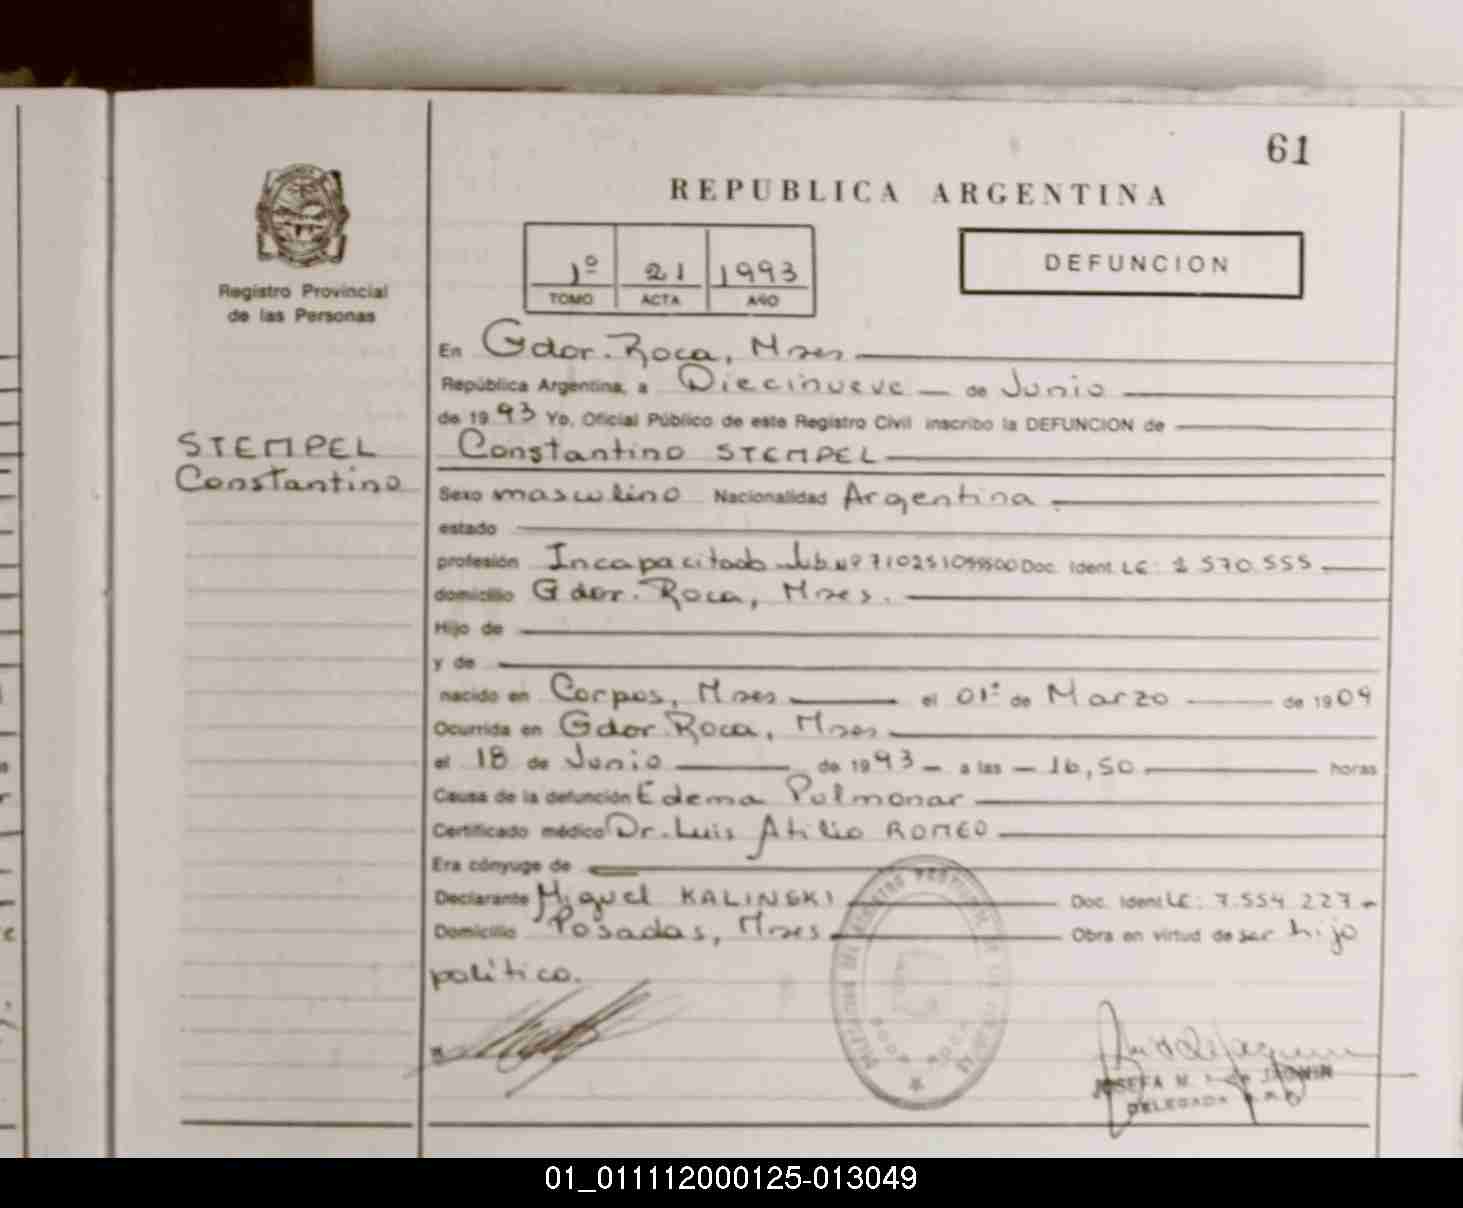 61
REPUBLICA ARGENTINA
1º 21 1993
TOMO ACTA AÑO
DEFUNCION
Registro Provincial
de las Personas
En Gdor. Roca, Mnes
República Argentina, a Diecinueve de Junio
de 1993 Yo, Oficial Público de este Registro Civil inscribo la DEFUNCION de
STEMPEL
Constantino
Constantino STEMPEL
Sexo masculino Nacionalidad Argentina.
estado
profesión Incapacitado Jub Nº Doc. Ident. LE: 570.555
domicilio Gdor. Roca, Mnes.
Hijo de
y de
nacido en Corpus, Mnes el 01º de Marzo de 1909
Ocurrida en Gdor. Roca, Mnes
el 18 de Junio de 1993 a las 16,50 horas
Causa de la defunción Edema Pulmonar
Certificado médico Dr. Luis Atilio ROMEO
Era cónyuge de
Declarante Miguel KALINSKI Doc. Ident LE: 7.554.227
Domicilio Posadas, Mnes Obra en virtud de ser hijo
político.
JOSEFA
DELEGADA
01_011112000125-013049